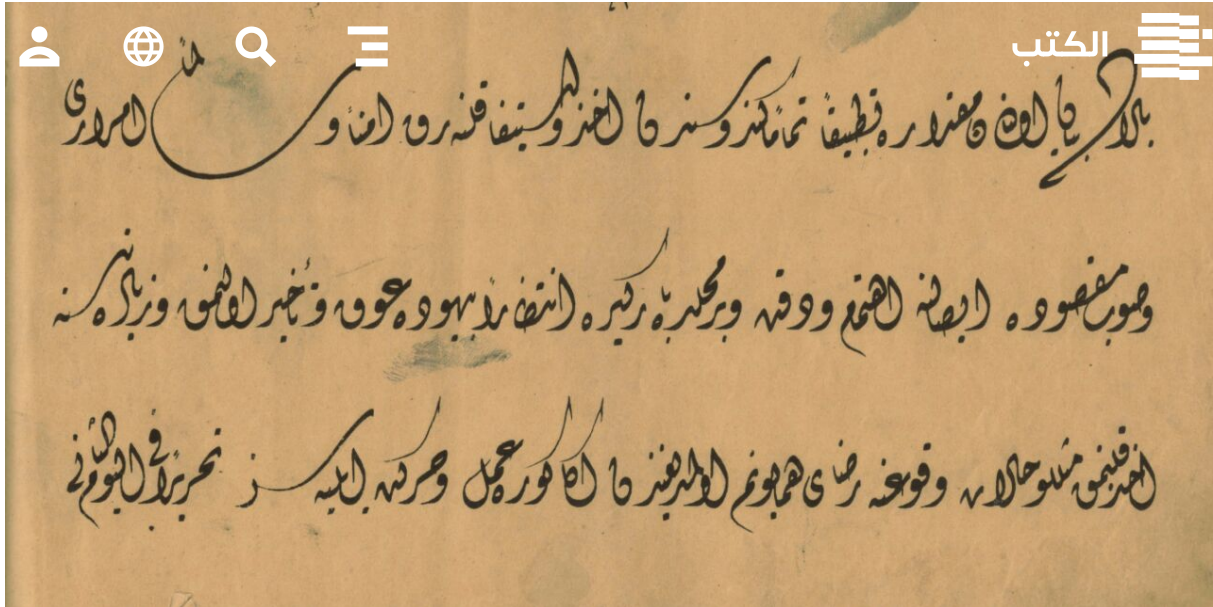 الكتب
بالاده بيان اولنان مقداره تطبيقاً تماماً كندوسندن اخذ و استيفا قلنه رق امناً و سالماً امرارى
صوب مقصوده ايصالنه اهتمام ودقت وبر محلده بارگيره انتظاراً بيهوده عوق وتأخير اولنمق وزياده سنه
اخذ قلنمق مثللو حالات وقوعنه رضاى همايونم اولمديغندن اكا كوره عمل وحركت ايليه سز تحريراً فى اليوم الثانى